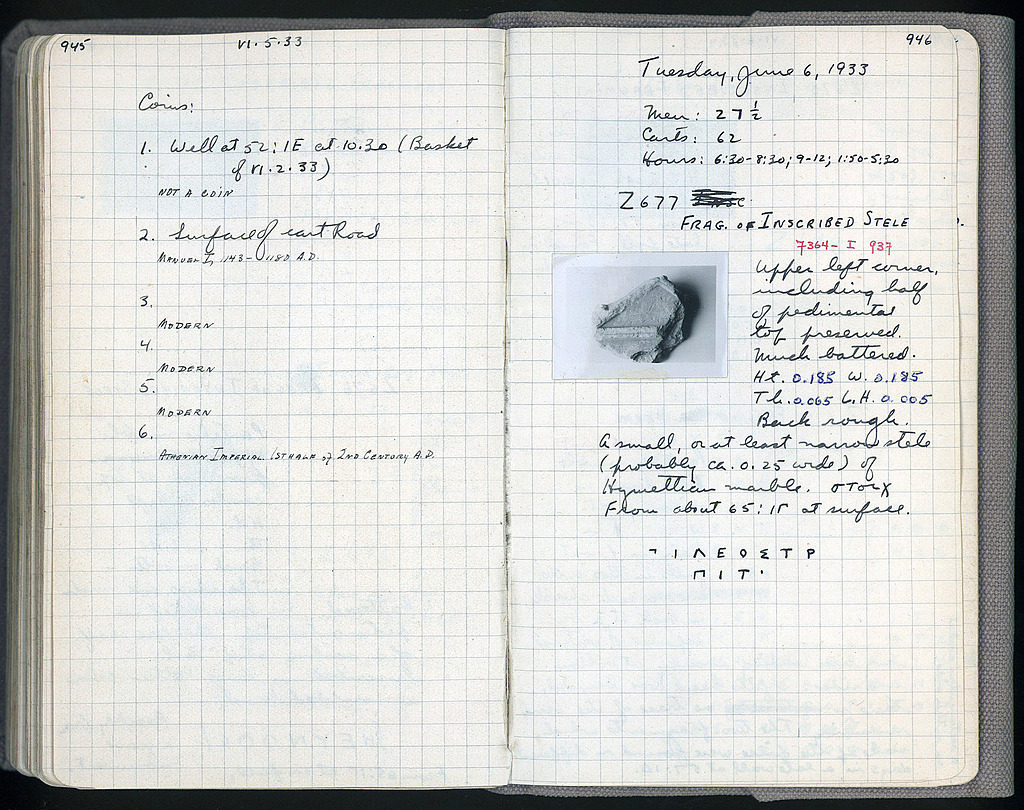 945
VI.5.33
Coins:
1. Well at 52:IE at 10.30 (Basket
of VI.2.33)
NOT A COIN
2. Surface of cart Road
MANUEL I, 1143-1180 A.D.
3.
MODERN
4.
MODERN
5.
MODERN
6.
ATHENIAN IMPERIAL 1ST HALF of 2ND CENTURY A.D.
946
Tuesday, June 6, 1933
Men: 27 1/2
Carts: 62
Hours: 6:30-8:30; 9-12; 1:50-5:30
Z677
FRAG. OF INSCRIBED STELE
7364- I 937
Upper left corner,
including half
of pedimental
top preserved.
Much battered.
Ht. 0.185 W. 0.185
Th. 0.065 L.H. 0.005
Back rough.
A small, or at least narrow stele
(probably ca. 0.25 wide) of
Hymettian marble.
From about 65:IΓ at surface.
Ι Λ Ε Ο Σ Τ Ρ
Π Ι Τ